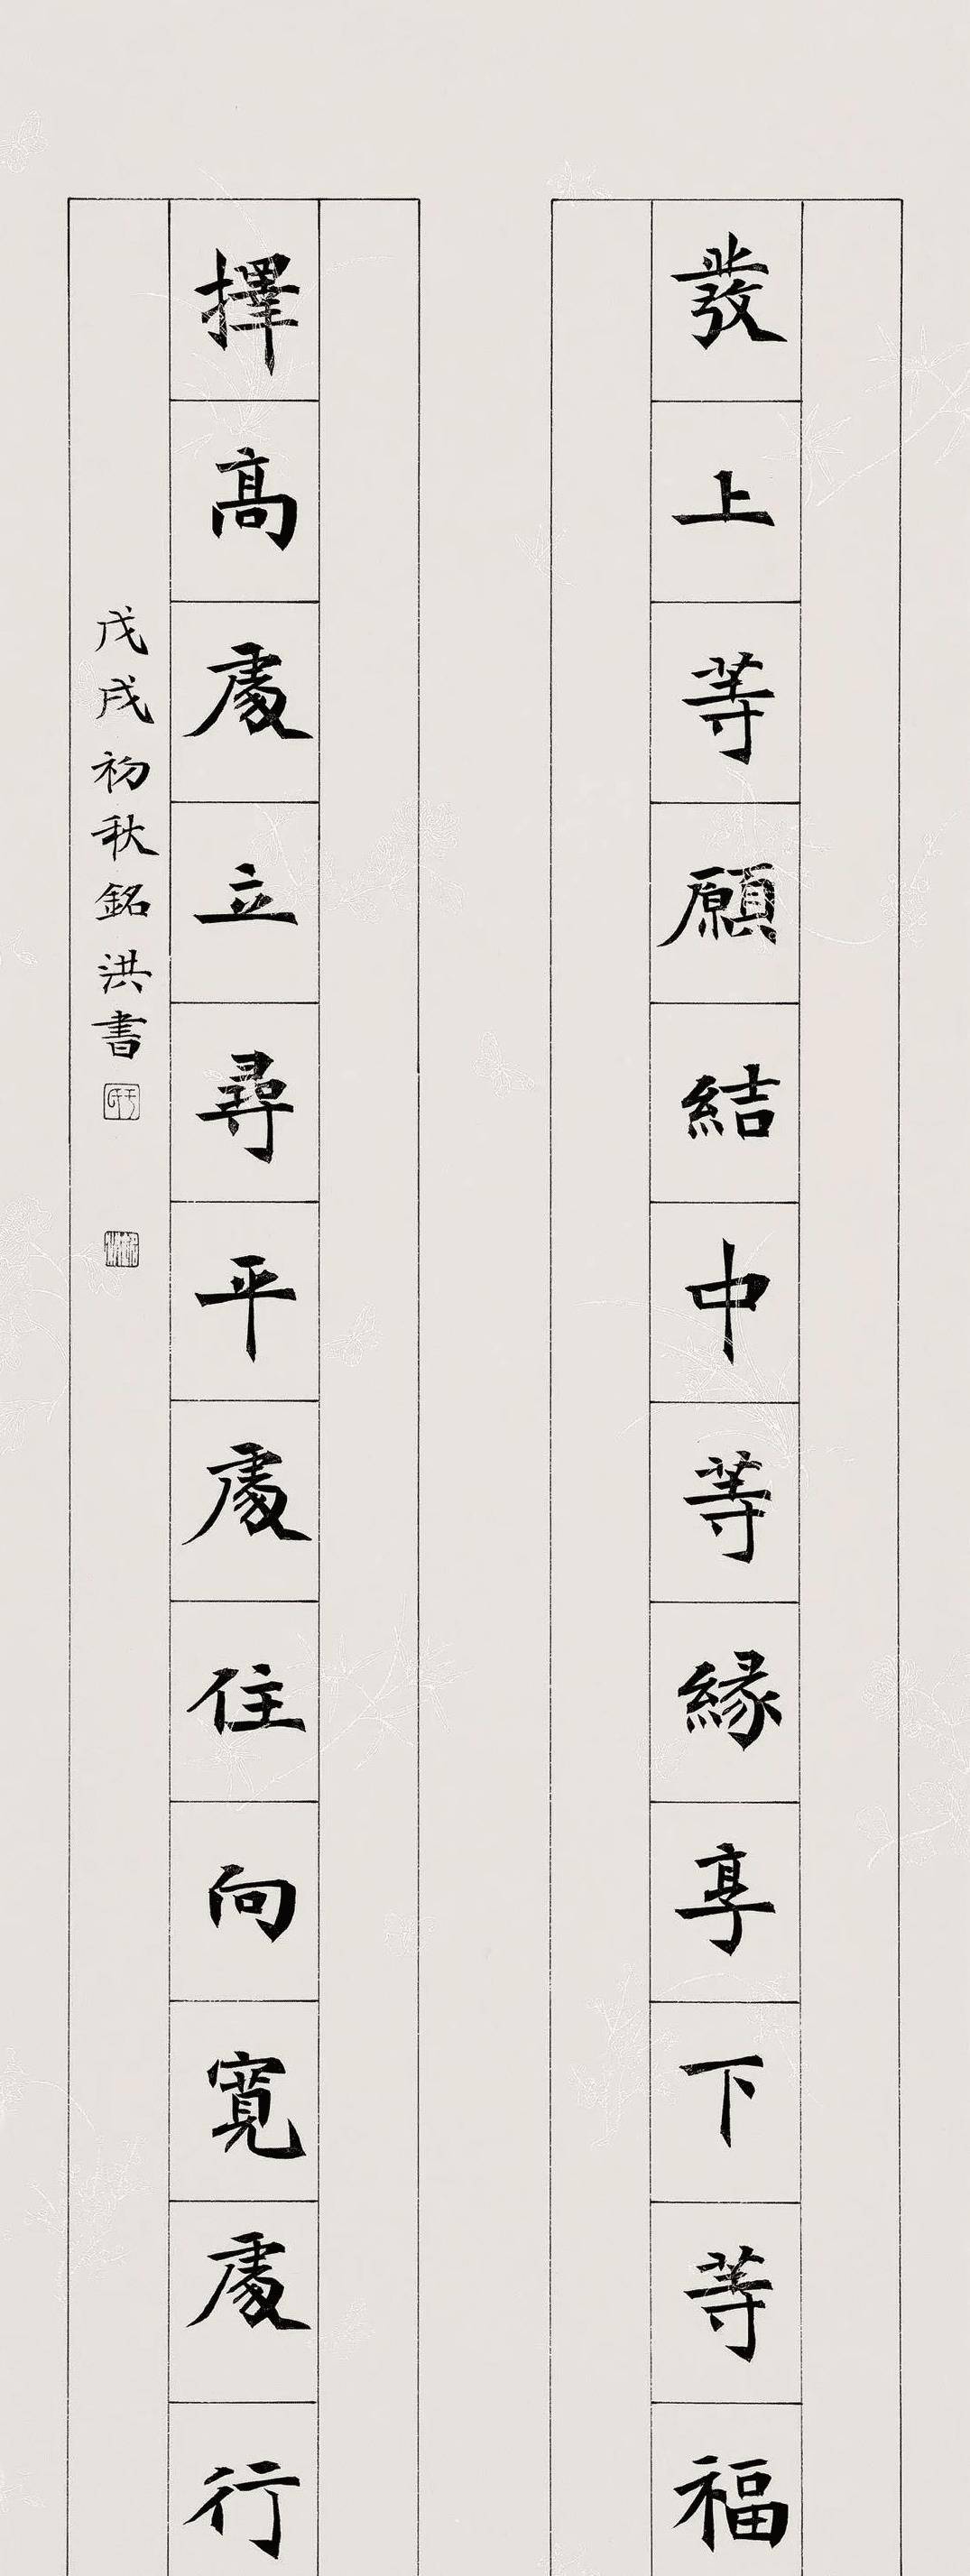 發上等願結中等緣享下等福
擇高處立尋平處住向寬處行
戊戌初秋銘洪書